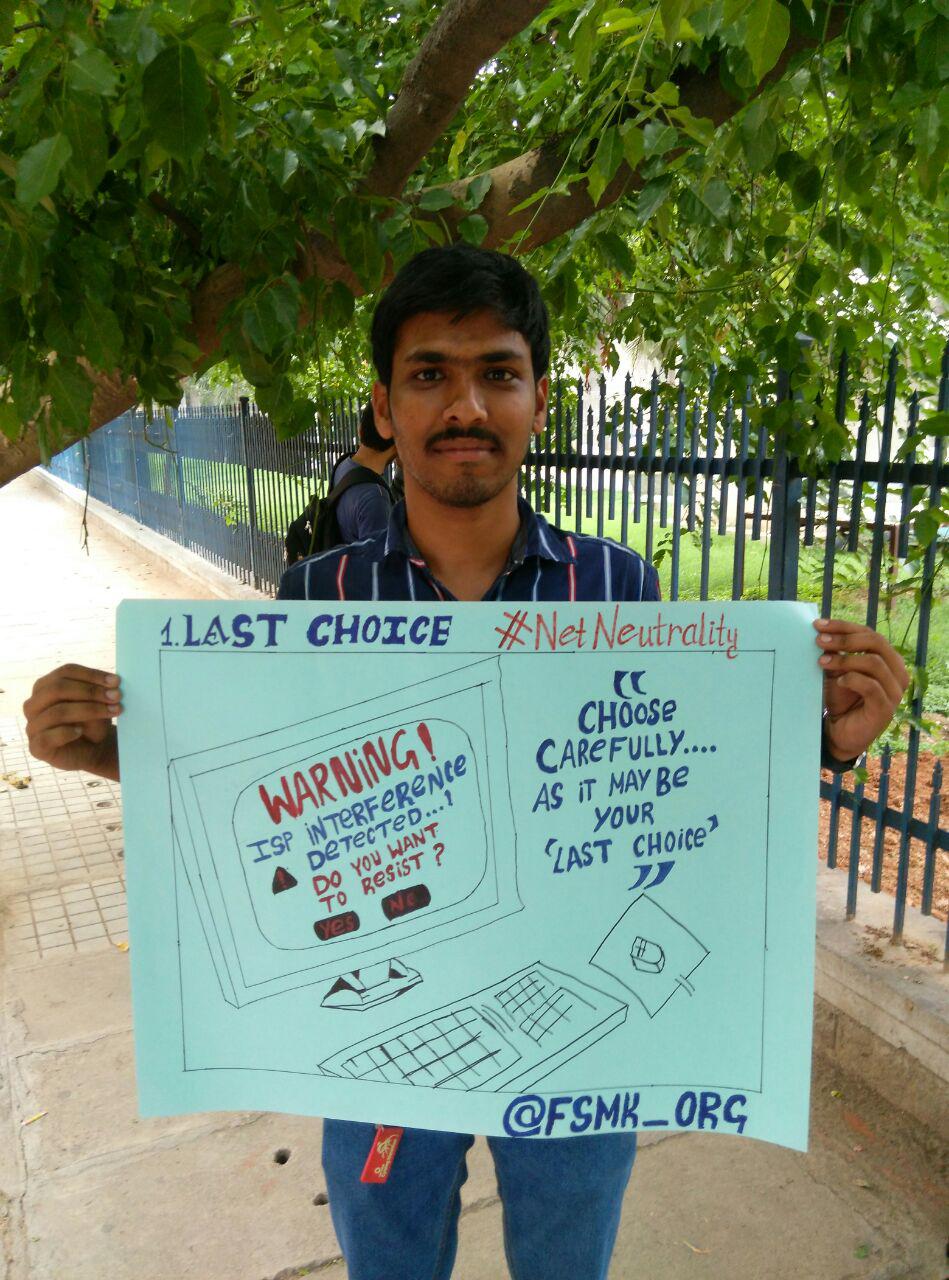 1. LAST CHOICE #NetNeutrality
WARNiNG!
ISP iNTERFERENCE
DETECTED...!
DO YOU WANT
TO RESIST ?
Yes No
“
CHOOSE
CAREFULLY....
AS iT MAY BE
YOUR
‘LAST CHOiCE’
”
@FSMK_ORG